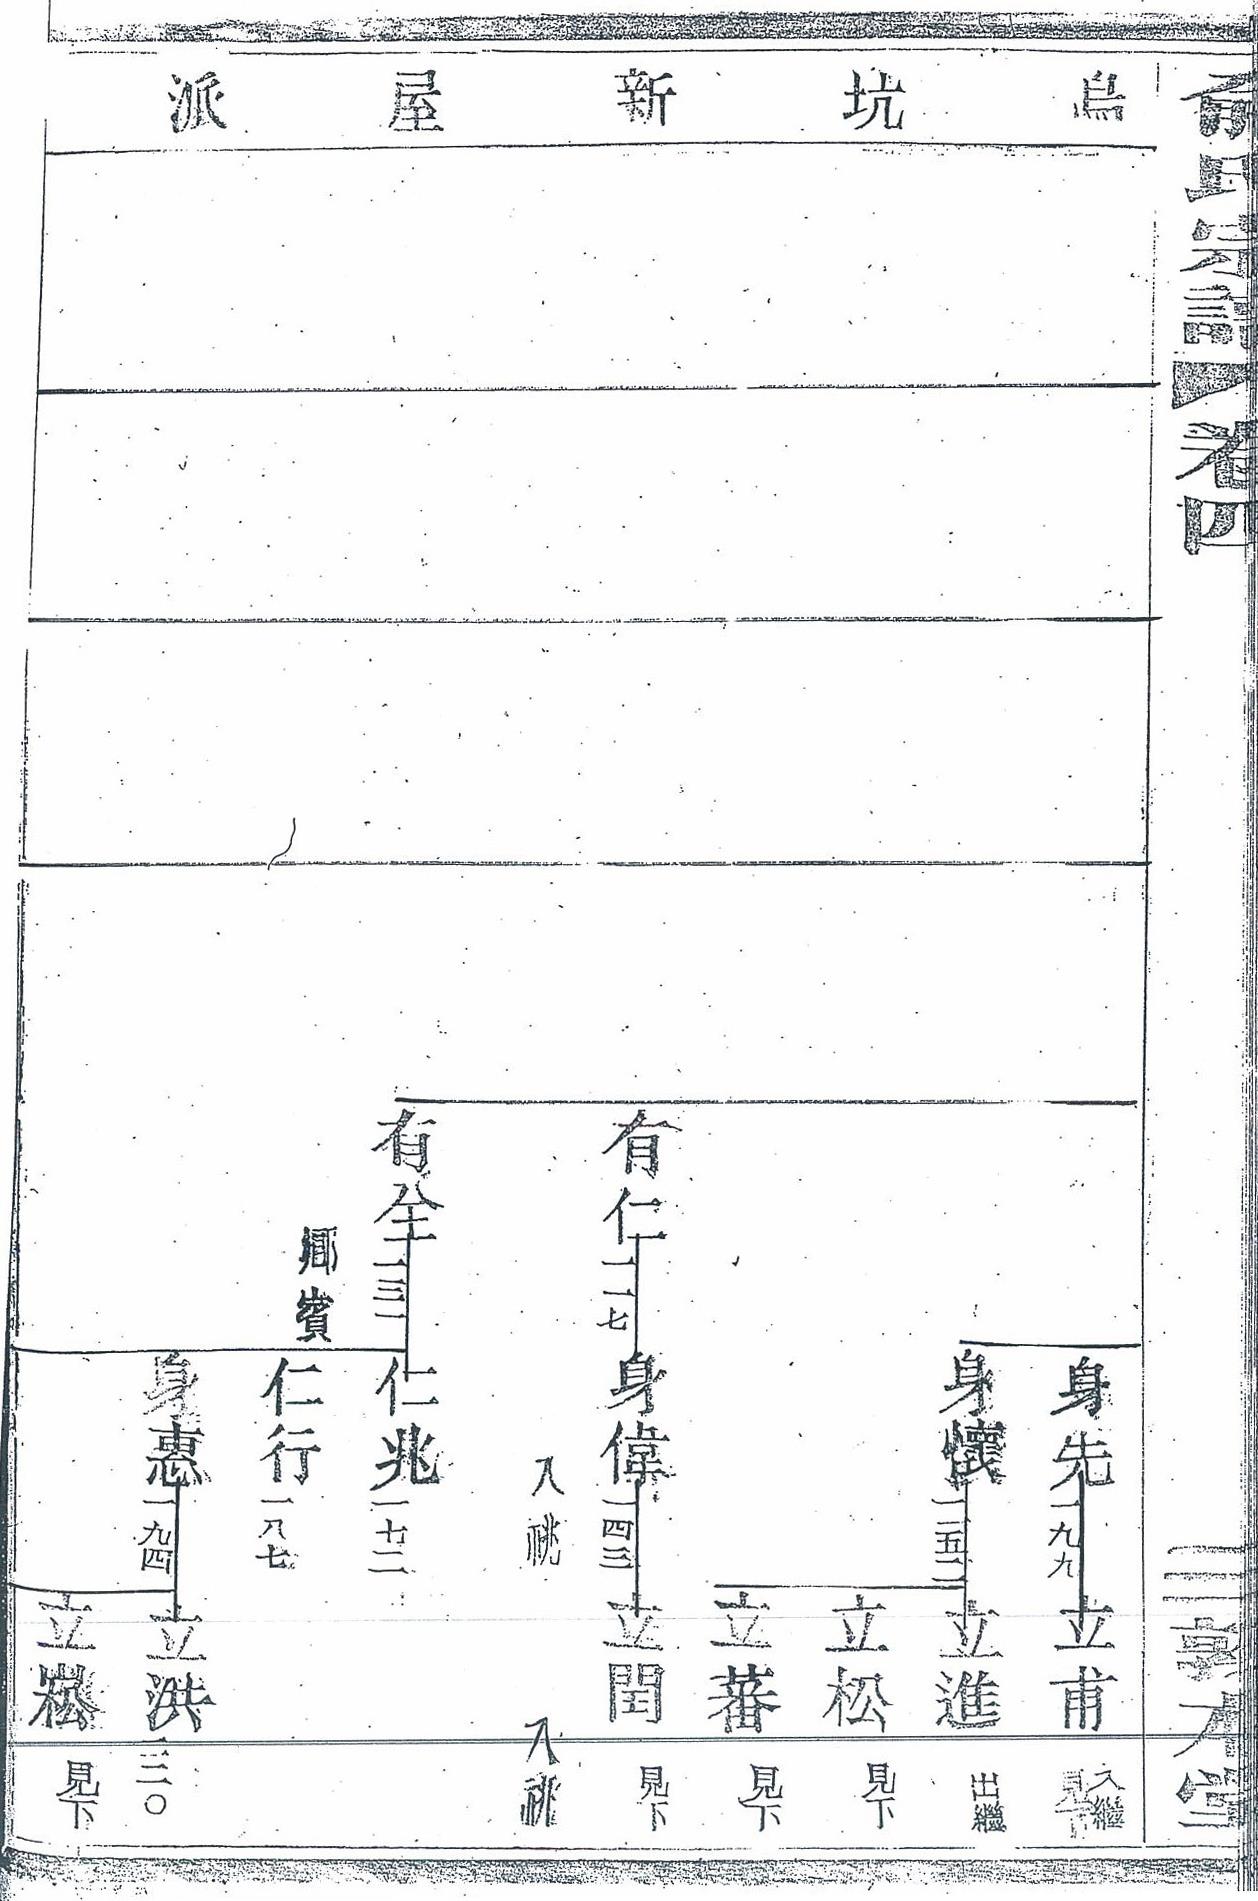 俞氏宗譜 卷四
三 敦本堂
烏坑新屋派
有仁 一一七
有全 一三一
鄉賓
身先 一九九
身懷 一五二
身偉 一四三
入祧
仁兆 一七二
仁行 一八七
身惠 一九四
立甫 入繼 見下
立進 出繼
立松 見下
立蕃 見下
立閏 見下
入祧
立洪 二三〇
立崧 見下